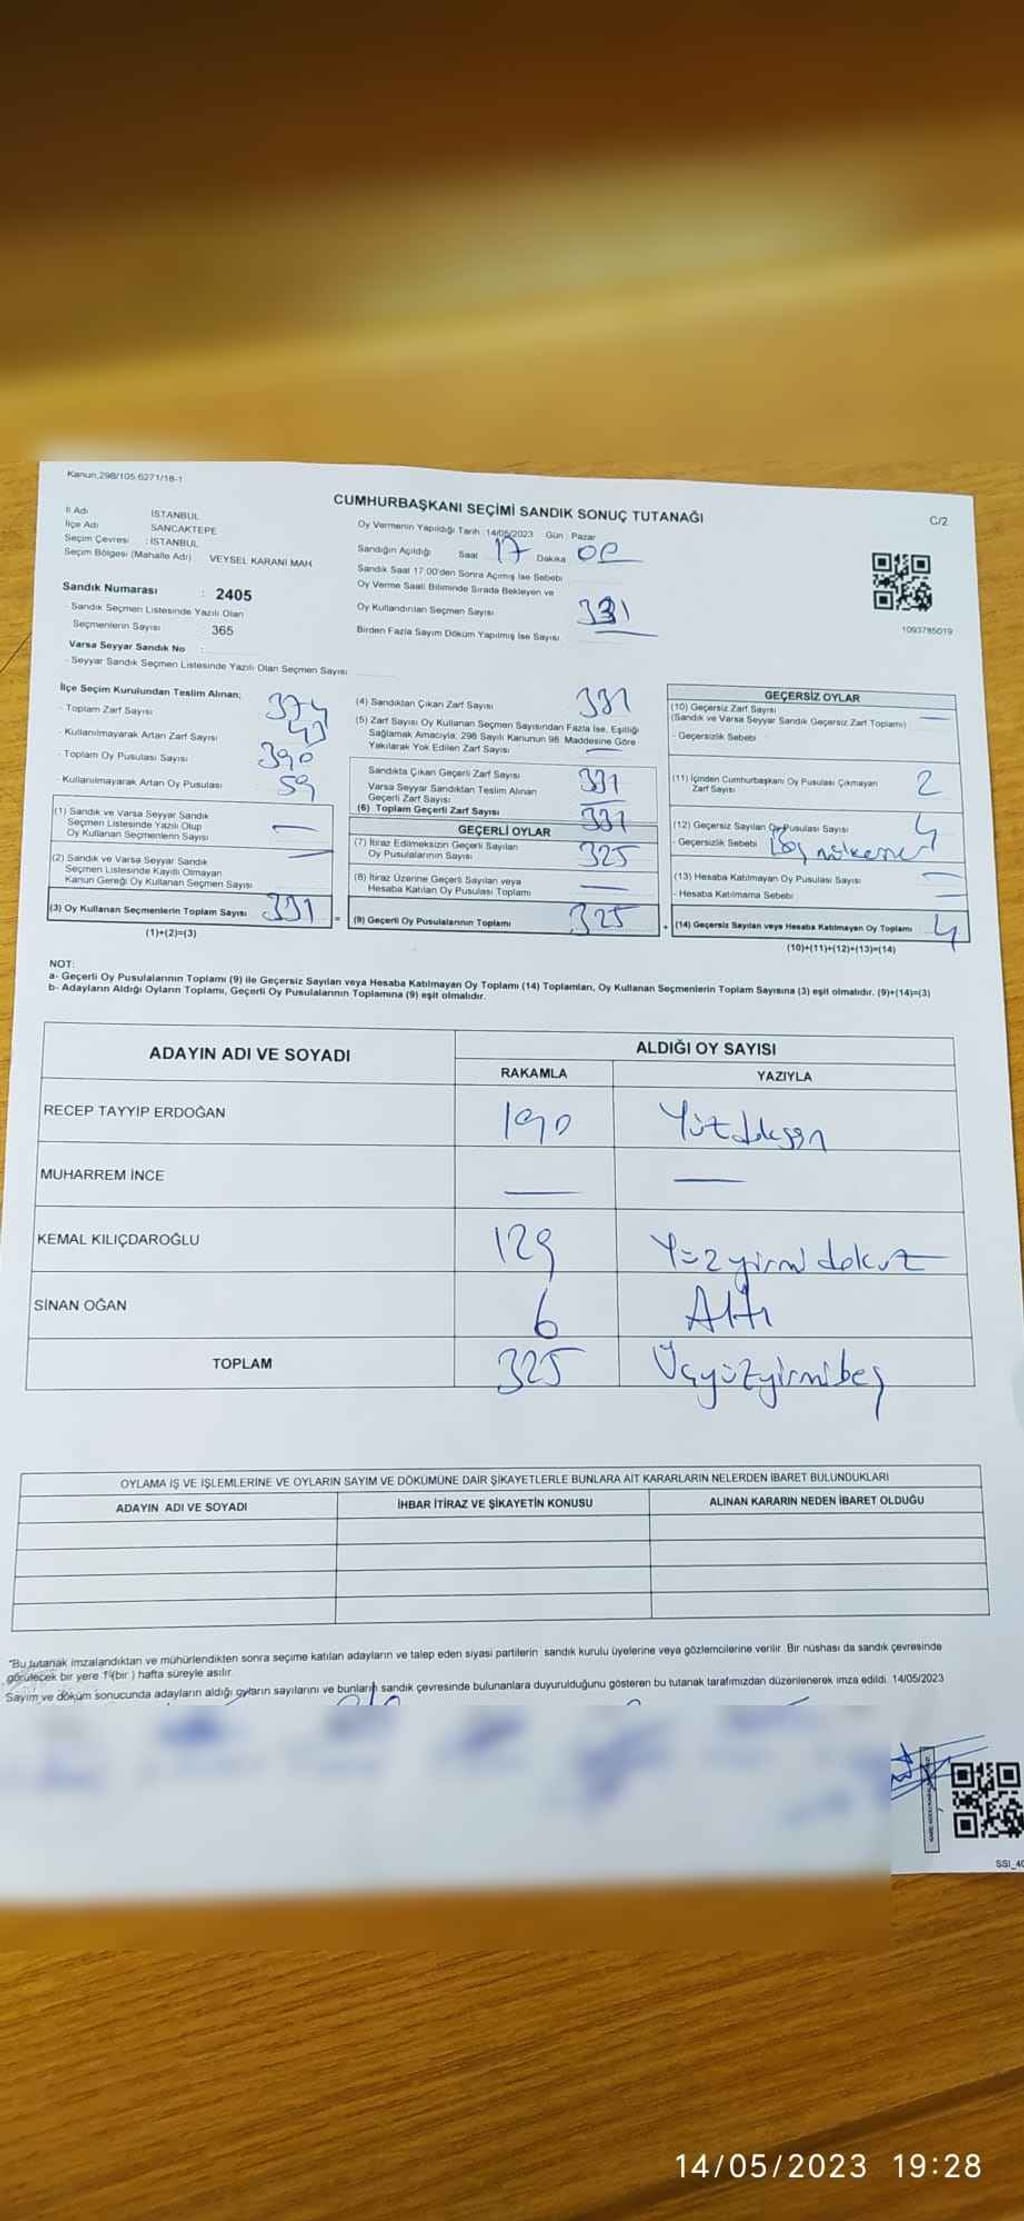 Kanun,298/105 6271/18-1
CUMHURBAŞKANI SEÇİMİ SANDIK SONUÇ TUTANAĞI
C/2
İl Adı İSTANBUL
İlçe Adı SANCAKTEPE
Seçim Çevresi : İSTANBUL
Seçim Bölgesi (Mahalle Adı) VEYSEL KARANİ MAH
Sandık Numarası : 2405
Sandık Seçmen Listesinde Yazılı Olan
Seçmenlerin Sayısı 365
Varsa Seyyar Sandık No :
- Seyyar Sandık Seçmen Listesinde Yazılı Olan Seçmen Sayısı
Oy Vermenin Yapıldığı Tarih :14/05/2023 Gün : Pazar
Sandığın Açıldığı Saat 17 Dakika
Sandık Saat 17.00'den Sonra Açılmış İse Sebebi
Oy Verme Saati Bitiminde Sırada Bekleyen ve
Oy Kullandırılan Seçmen Sayısı 331
Birden Fazla Sayım Döküm Yapılmış İse Sayısı
1093785019
İlçe Seçim Kurulundan Teslim Alınan;
- Toplam Zarf Sayısı 374
- Kullanılmayarak Artan Zarf Sayısı
- Toplam Oy Pusulası Sayısı 390
- Kullanılmayarak Artan Oy Pusulası 59
(1) Sandık ve Varsa Seyyar Sandık
Seçmen Listesinde Yazılı Olup
Oy Kullanan Seçmenlerin Sayısı —
(2) Sandık ve Varsa Seyyar Sandık
Seçmen Listesinde Kayıtlı Olmayan
Kanun Gereği Oy Kullanan Seçmen Sayısı —
(3) Oy Kullanan Seçmenlerin Toplam Sayısı 331 =
(1)+(2)=(3)
(4) Sandıktan Çıkan Zarf Sayısı 331
(5) Zarf Sayısı Oy Kullanan Seçmen Sayısından Fazla İse, Eşitliği
Sağlamak Amacıyla, 298 Sayılı Kanunun 98. Maddesine Göre
Yakılarak Yok Edilen Zarf Sayısı —
Sandıkta Çıkan Geçerli Zarf Sayısı 331
Varsa Seyyar Sandıktan Teslim Alınan
Geçerli Zarf Sayısı
(6) Toplam Geçerli Zarf Sayısı 331
GEÇERLİ OYLAR
(7) İtiraz Edilmeksizin Geçerli Sayılan
Oy Pusulalarının Sayısı 325
(8) İtiraz Üzerine Geçerli Sayılan veya
Hesaba Katılan Oy Pusulası Toplamı —
(9) Geçerli Oy Pusulalarının Toplamı 325 +
GEÇERSİZ OYLAR
(10) Geçersiz Zarf Sayısı —
(Sandık ve Varsa Seyyar Sandık Geçersiz Zarf Toplamı)
- Geçersizlik Sebebi
(11) İçinden Cumhurbaşkanı Oy Pusulası Çıkmayan
Zarf Sayısı 2
(12) Geçersiz Sayılan Oy Pusulası Sayısı 4
- Geçersizlik Sebebi
(13) Hesaba Katılmayan Oy Pusulası Sayısı —
- Hesaba Katılmama Sebebi —
(14) Geçersiz Sayılan veya Hesaba Katılmayan Oy Toplamı 4
(10)+(11)+(12)+(13)=(14)
NOT:
a- Geçerli Oy Pusulalarının Toplamı (9) ile Geçersiz Sayılan veya Hesaba Katılmayan Oy Toplamı (14) Toplamları, Oy Kullanan Seçmenlerin Toplam Sayısına (3) eşit olmalıdır. (9)+(14)=(3)
b- Adayların Aldığı Oyların Toplamı, Geçerli Oy Pusulalarının Toplamına (9) eşit olmalıdır.
ADAYIN ADI VE SOYADI
ALDIĞI OY SAYISI
RAKAMLA YAZIYLA
RECEP TAYYİP ERDOĞAN 190
MUHARREM İNCE — —
KEMAL KILIÇDAROĞLU 129 Yüzyirmi dokuz
SİNAN OĞAN 6 Altı
TOPLAM 325 Üçyüzyirmibeş
OYLAMA İŞ VE İŞLEMLERİNE VE OYLARIN SAYIM VE DÖKÜMÜNE DAİR ŞİKAYETLERLE BUNLARA AİT KARARLARIN NELERDEN İBARET BULUNDUKLARI
ADAYIN ADI VE SOYADI İHBAR İTİRAZ VE ŞİKAYETİN KONUSU ALINAN KARARIN NEDEN İBARET OLDUĞU
"Bu tutanak imzalandıktan ve mühürlendikten sonra seçime katılan adayların ve talep eden siyasi partilerin sandık kurulu üyelerine veya gözlemcilerine verilir. Bir nüshası da sandık çevresinde
görülecek bir yere 1 (bir ) hafta süreyle asılır.
Sayım ve döküm sonucunda adayların aldığı oyların sayılarını ve bunların sandık çevresinde bulunanlara duyurulduğunu gösteren bu tutanak tarafımızdan düzenlenerek imza edildi. 14/05/2023
SSI_40
14/05/2023 19:28